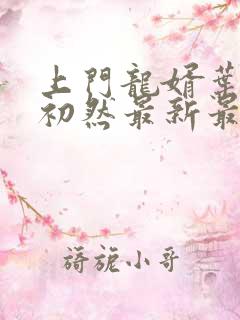 上門龍婿葉
初然最新最
旖旎小哥